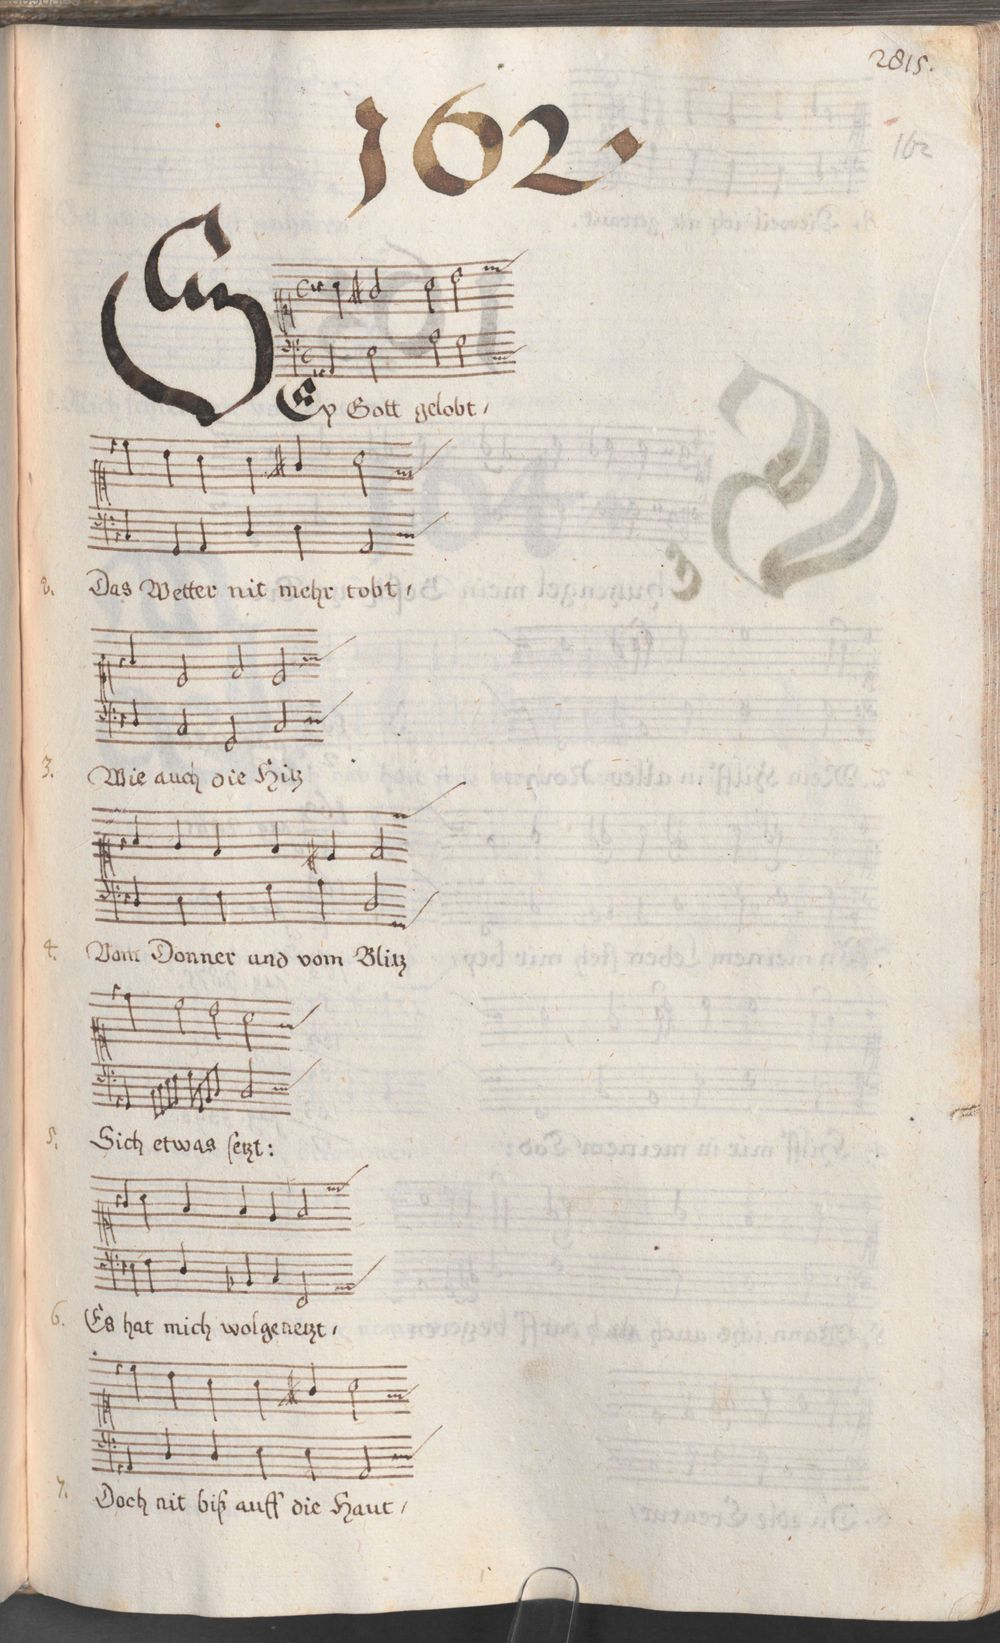 2815.
162.
162
Ey Gott gelobt /
2. Das Wetter nit mehr tobt /
3. Wie auch die Hitz
4. Vom Donner und vom Blitz
5. Sich etwas setzt:
6. Es hat mich wolgenetzt /
7. Doch nit biß auff die Haut /